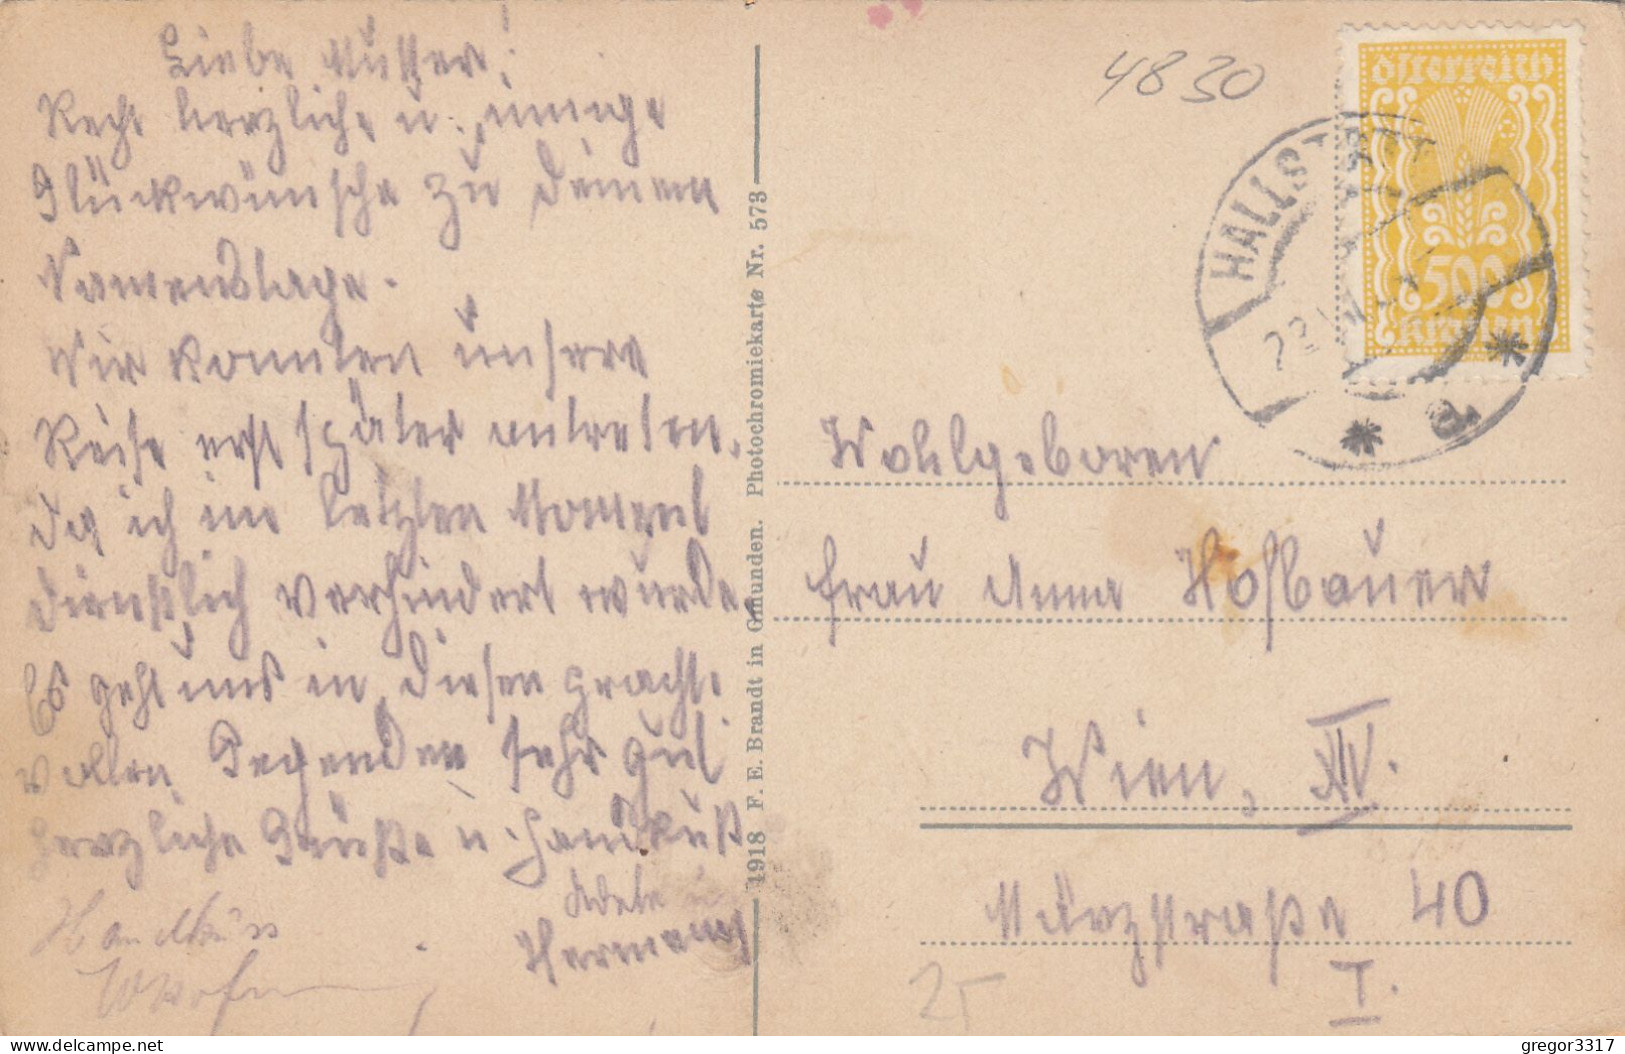 Liebe Mutter!
Recht herzliche u. innige
Glückwünsche zu Deinem
Namenstage.
Wir konnten unsere
Reise erst später antreten,
da ich im letzten Moment
dienstlich verhindert wurde.
Es geht uns in diesen pracht-
vollen Gegenden sehr gut
Herzliche Grüße u. Handkuß
Adele u
Hermann
Handkuss
1918 F. E. Brandt in Gmunden. Photochromiekarte Nr. 573
4830
Österreich
500
Kronen
HALLSTATT
Wohlgeboren
Frau Anna Hofbauer
Wien, XIV.
Märzstraße 40
I.
25
delcampe.net
gregor3317